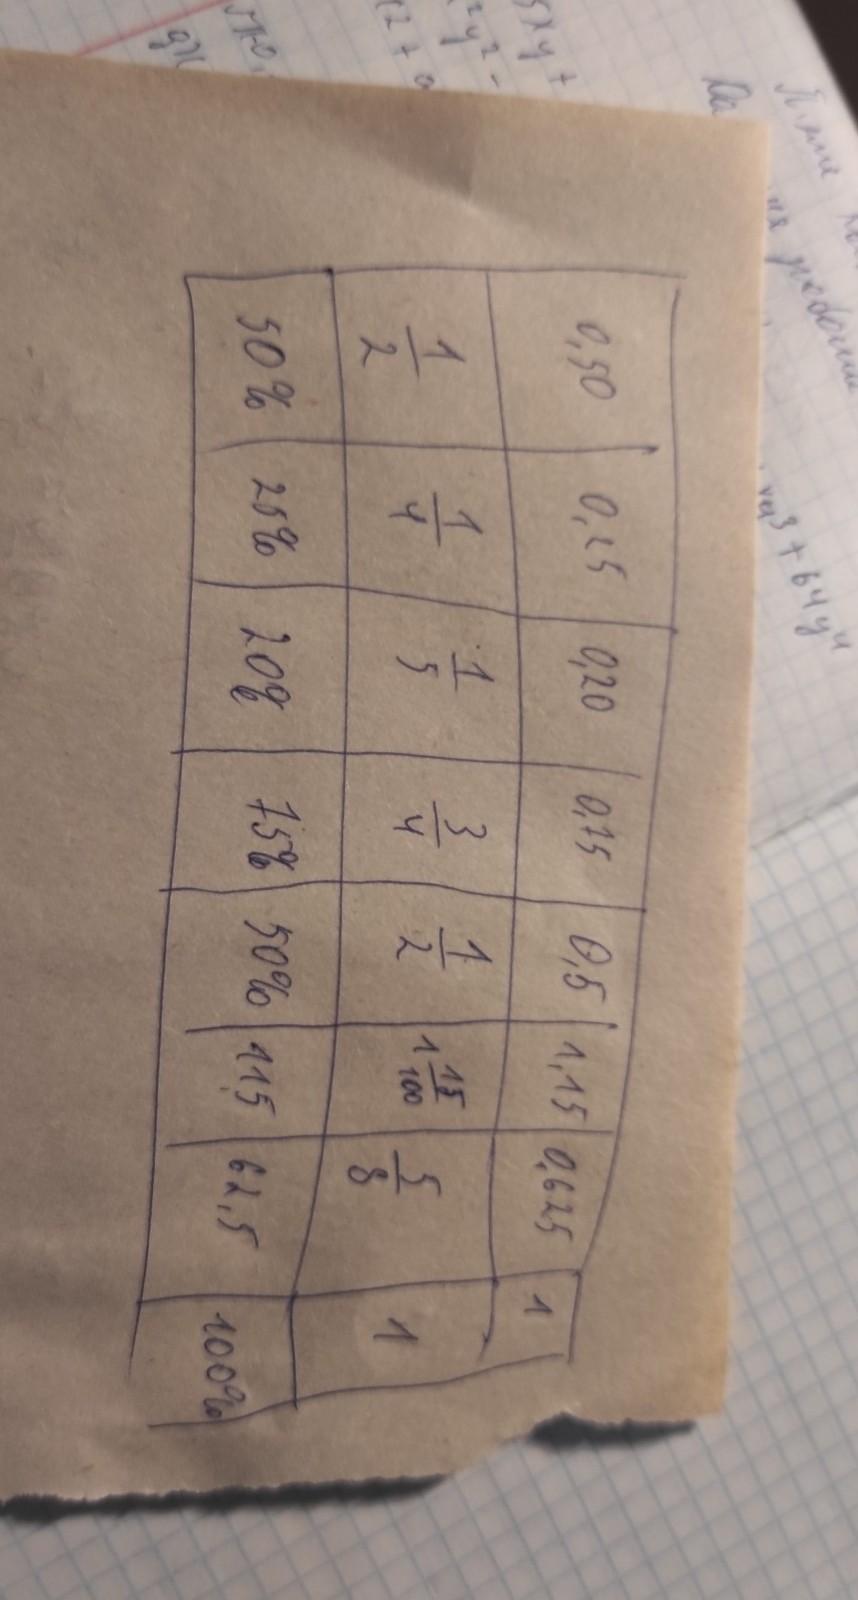 0,50 0,25 0,20 0,75 0,5 1,15 0,625 1
1/2 1/4 1/5 3/4 1/2 1 15/100 5/8 1
50% 25% 20% 75% 50% 115 62,5 100%
5xy +
²y² -
12 + a
уа³ + 64y⁴